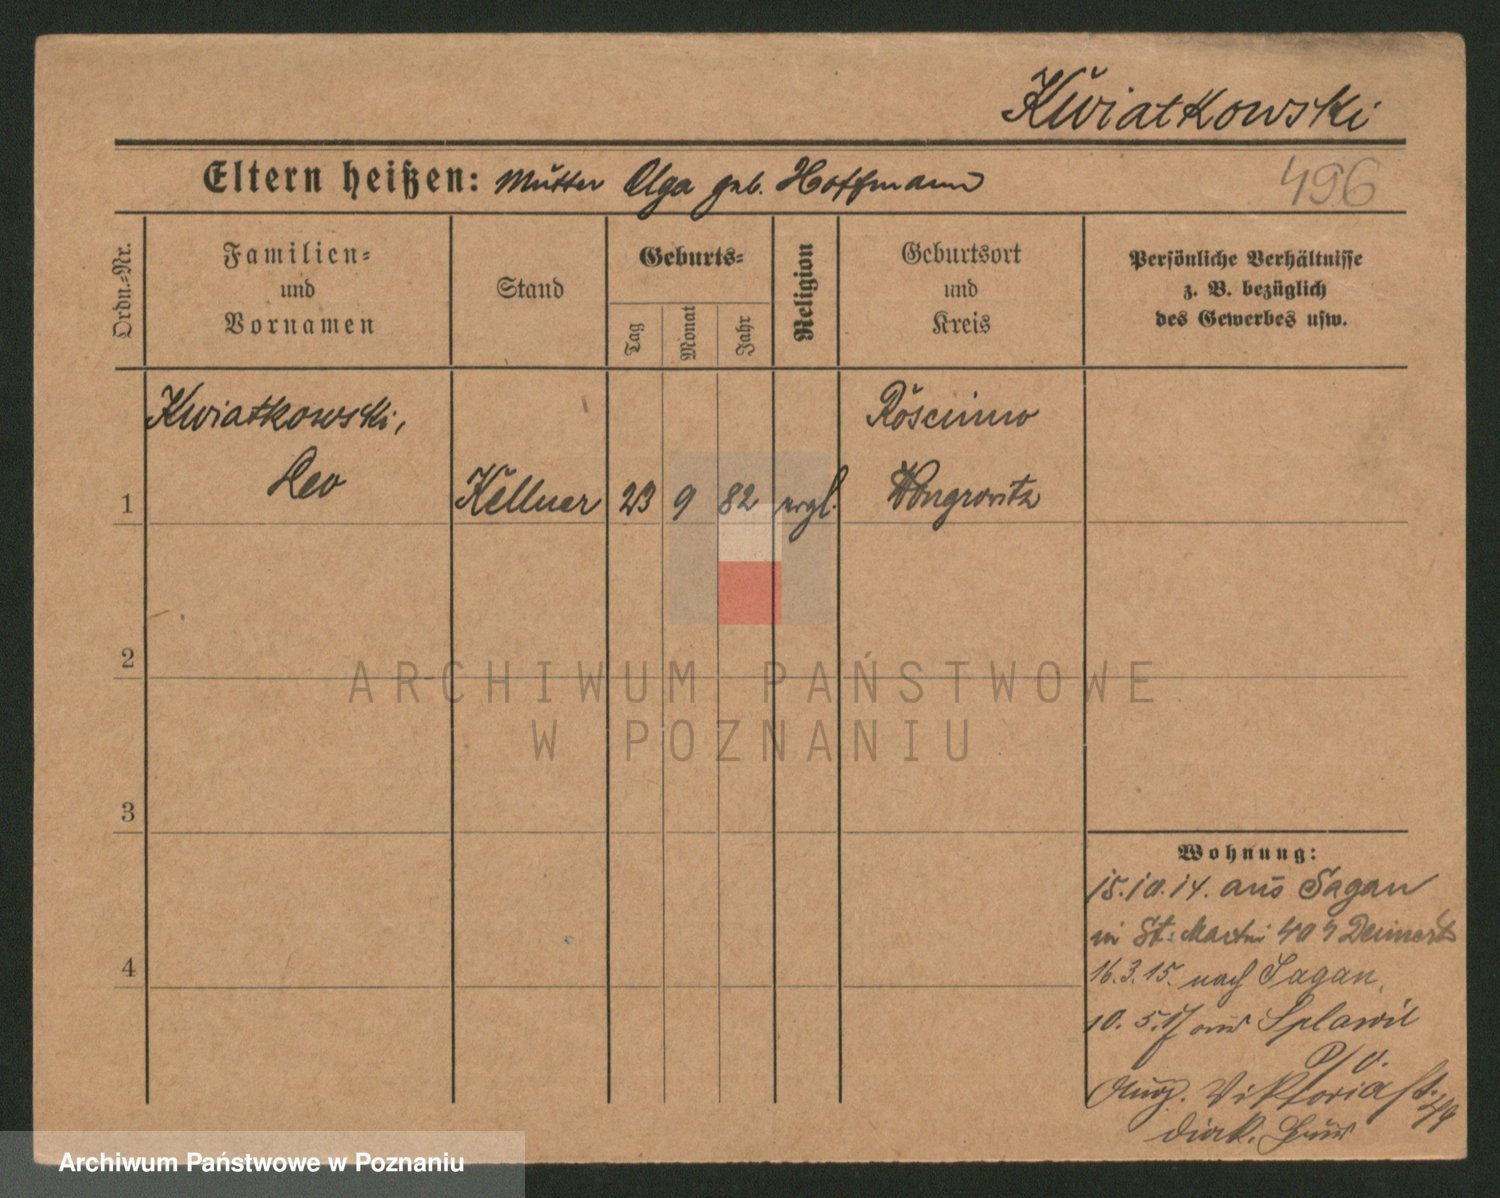 Kwiatkowski
Eltern heißen: Mutter Olga geb. Hoffmann
496
Ordn.-Nr.
Familien-
und
Vornamen
Stand
Geburts-
Tag
Monat
Jahr
Religion
Geburtsort
und
Kreis
Persönliche Verhältnisse
z. B. bezüglich
des Gewerbes usw.
Kwiatkowski,
Leo
1
Kellner
23
9
82
evgl.
Roscinno
Wongrowitz
2
3
4
Wohnung:
15.10.14. aus Sagan
in St. Martin 40
16.3.15. nach Sagan,
10. 5.17 aus Splawie
P/O.
Viktoriast. 29
Diak.
ARCHIWUM PAŃSTWOWE
W POZNANIU
Archiwum Państwowe w Poznaniu